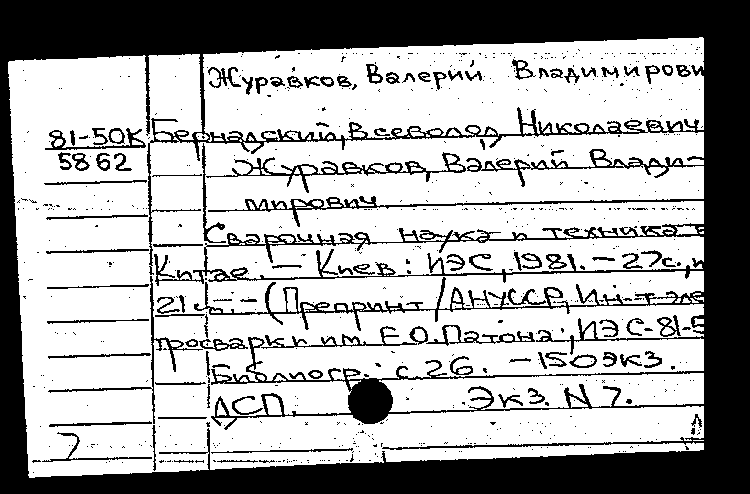 Журавков, Валерий Владимирови
81-50К Бернадский, Всеволод Николаевич
5862 Журавков, Валерий Влади-
мирович
Сварочная наука и техника в
Китае. — Киев: ИЭС, 1981. — 27с.,
21 см. — (Препринт / АНУССР, Ин-т эле
тросварки им. Е.О. Патона; ИЭС-81-5
Библиогр.: с 26. — 150 экз.
ДСП. Экз. N 7.